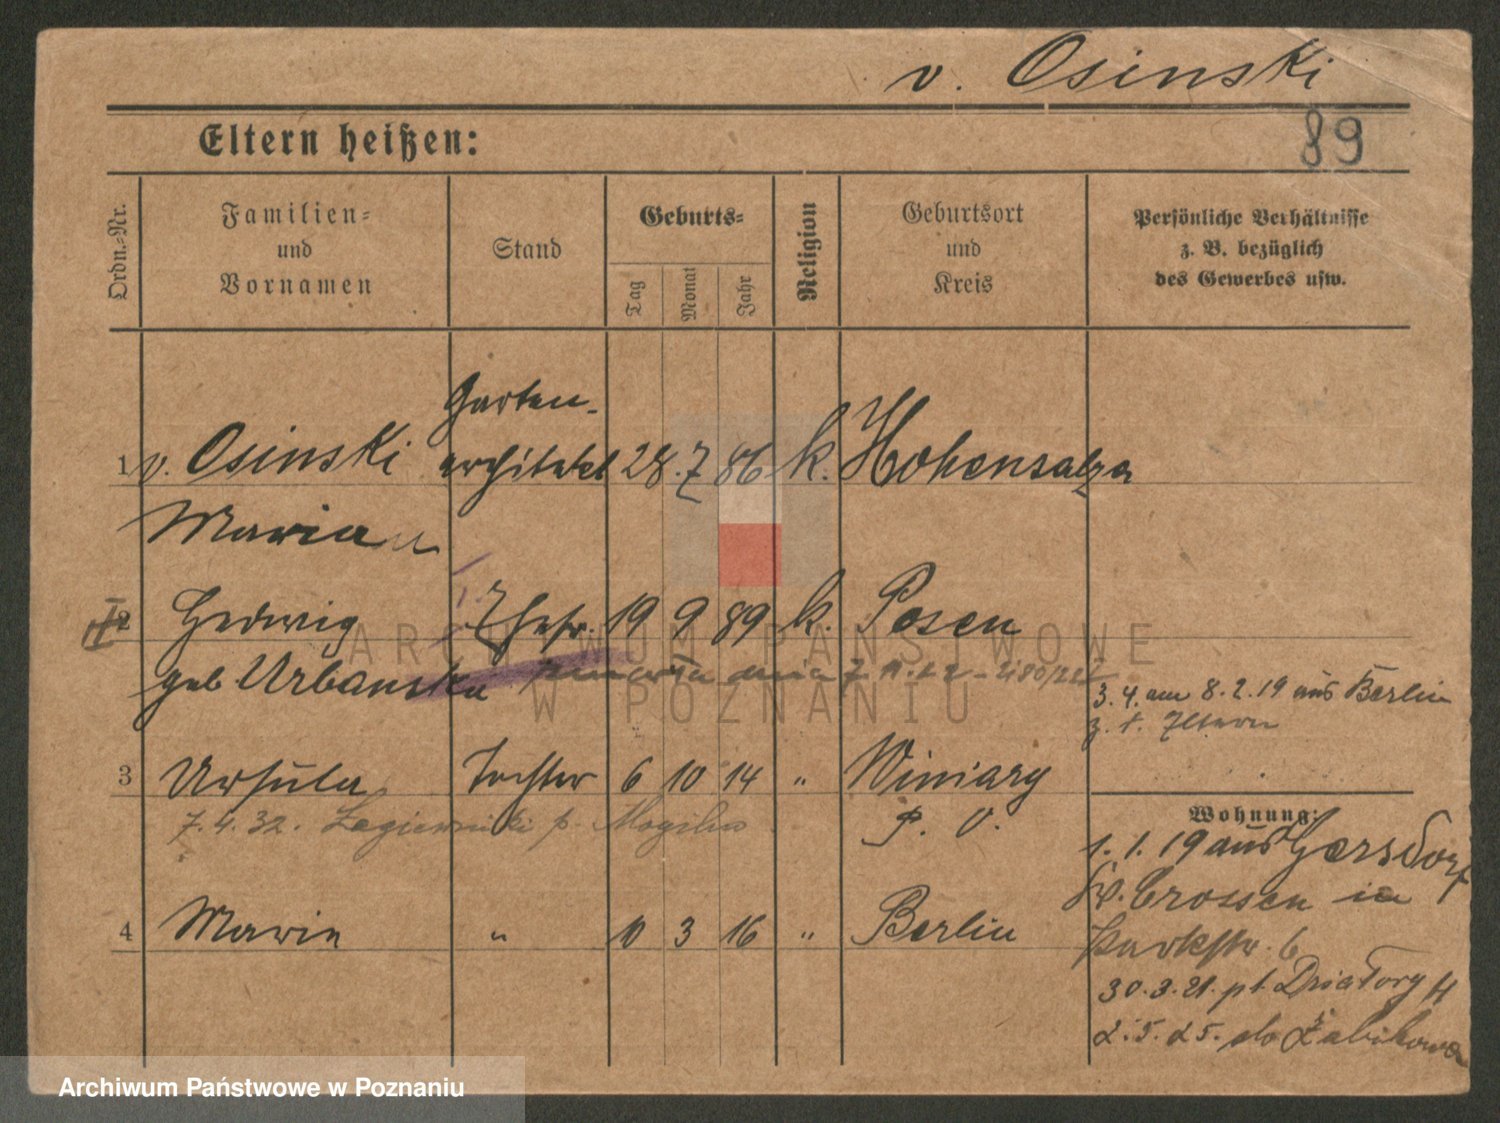 v. Osinski
89
Eltern heißen:
Ordn.-Nr.
Familien-
und
Vornamen
Stand
Geburts-
Tag
Monat
Jahr
Religion
Geburtsort
und
Kreis
Persönliche Verhältnisse
z. B. bezüglich
des Gewerbes usw.
Garten-
1 v. Osinski architekt 28. 7 86 k. Hohensalza
Marian
2 Hedwig Ehefr. 19 9 89 k. Posen
geb Urbanska zmarła dnia
am 8.2.19 aus Berlin
z. Eltern
3 Ursula Tochter 6 10 14 " Winiary
7.4.32. Łagiewniki p. Mogilno P. O.
Wohnung:
1.1.19 aus Gersdorf
Crossen in
4 Maria " 10 3 16 " Berlin
Parkstr. 6
30.3.21. pt Działowy 11
2.5.25. do Żabikowa
ARCHIWUM PAŃSTWOWE
W POZNANIU
Archiwum Państwowe w Poznaniu